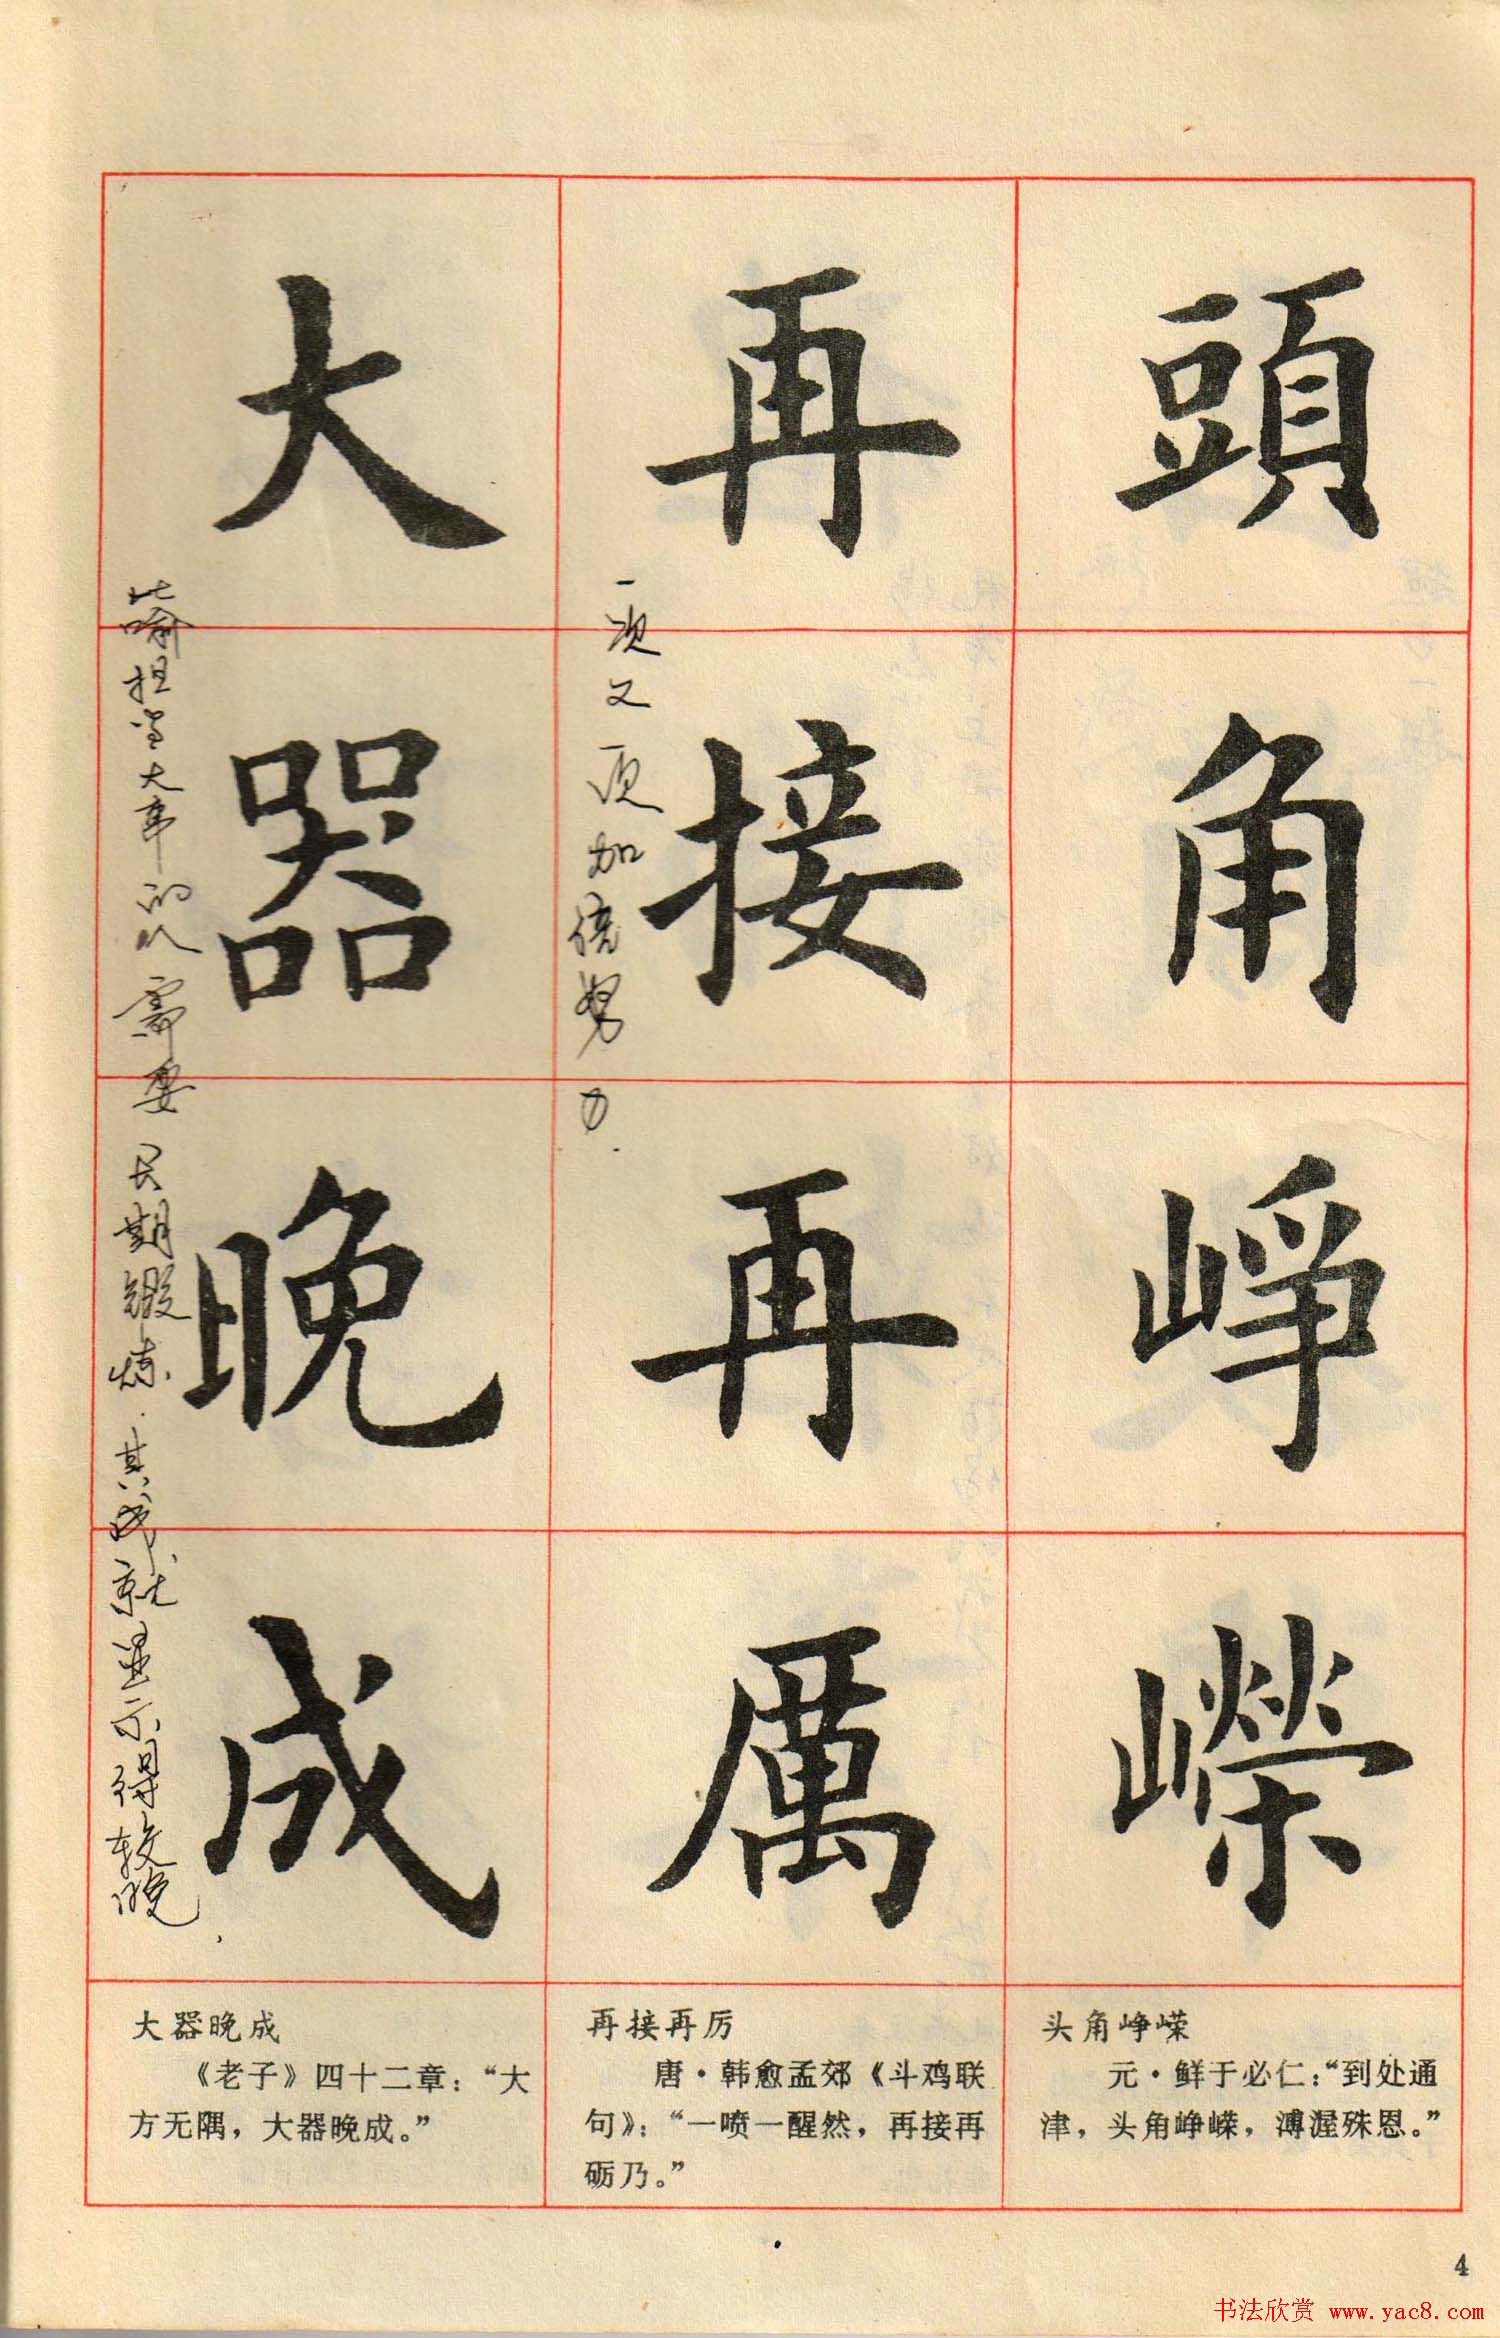 頭角崢嶸
再接再厲
大器晚成
一次又一次加倍努力.
比喻担当大事的人需要长期锻炼.其成就显示得较晚.
头角峥嵘
元·鲜于必仁：“到处通
津，头角峥嵘，溥渥殊恩。”
再接再厉
唐·韩愈孟郊《斗鸡联
句》：“一喷一醒然，再接再
砺乃。”
大器晚成
《老子》四十二章：“大
方无隅，大器晚成。”
4
书法欣赏 www.yac8.com